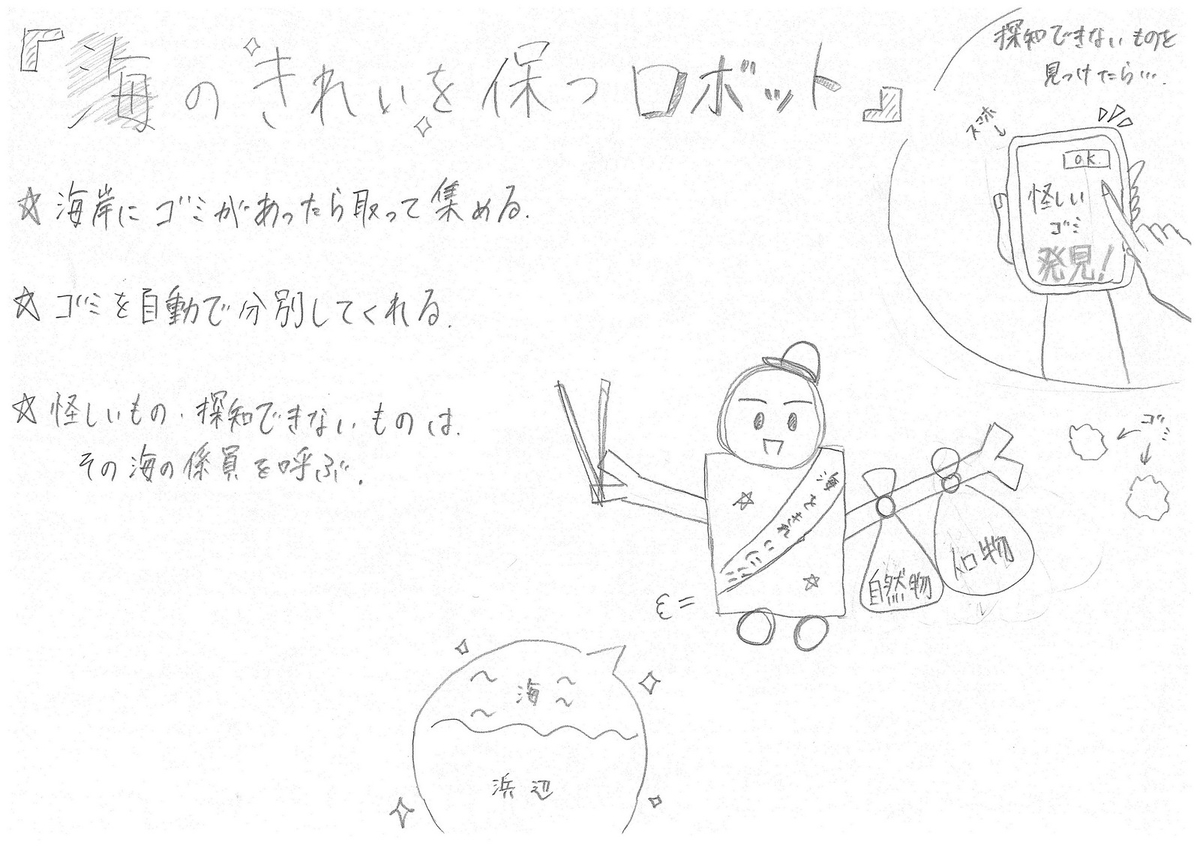 『海のきれいを保つロボット』
☆ 海岸にゴミがあったら取って集める.
☆ ゴミを自動で分別してくれる.
☆ 怪しいもの・探知できないものは.
その海の係員を呼ぶ.
探知できないものを
見つけたら….
スマホ
OK
怪しい
ゴミ
発見!
ゴミ
海をきれいに!!
自然物
人口物
海
浜辺